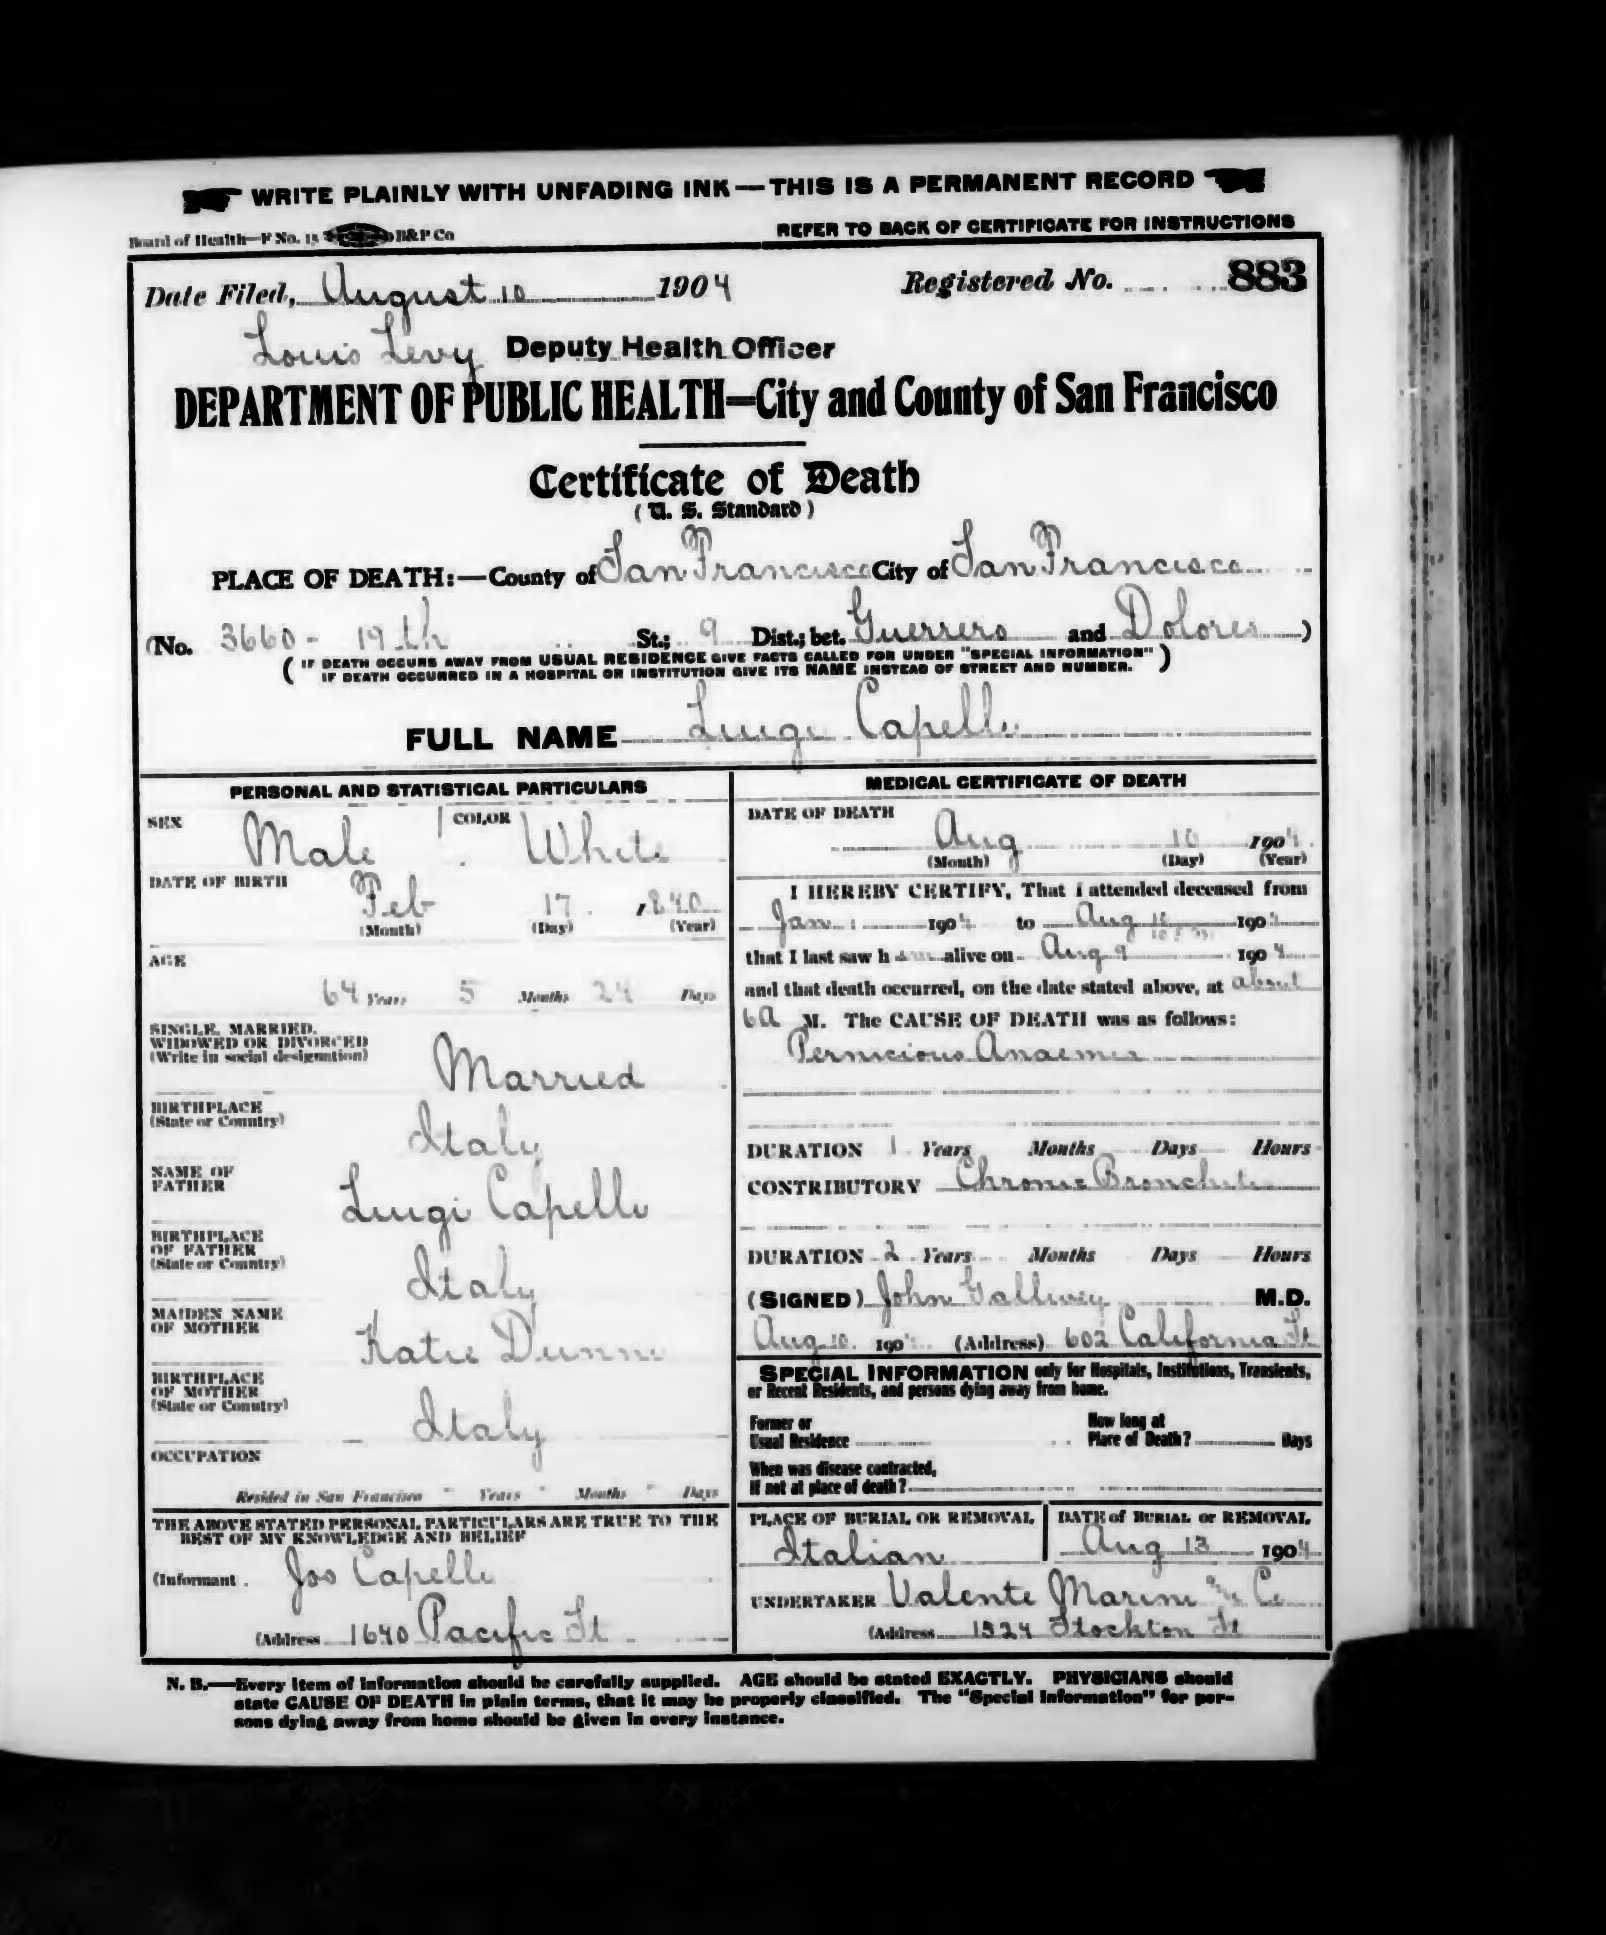 WRITE PLAINLY WITH UNFADING INK—THIS IS A PERMANENT RECORD
Board of Health—F No. 15 B&P Co
REFER TO BACK OF CERTIFICATE FOR INSTRUCTIONS
Date Filed, August 10 1904 Registered No. 883
Louis Levy Deputy Health Officer
DEPARTMENT OF PUBLIC HEALTH—City and County of San Francisco
Certificate of Death
(U. S. Standard)
PLACE OF DEATH:—County of San Francisco City of San Francisco
(No. 3660 - 19th St.; 9 Dist.; bet. Guerrero and Dolores)
(IF DEATH OCCURS AWAY FROM USUAL RESIDENCE GIVE FACTS CALLED FOR UNDER "SPECIAL INFORMATION"
IF DEATH OCCURRED IN A HOSPITAL OR INSTITUTION GIVE ITS NAME INSTEAD OF STREET AND NUMBER.)
FULL NAME Luigi Capelli
PERSONAL AND STATISTICAL PARTICULARS
SEX Male COLOR White
DATE OF BIRTH Feb 17, 1840
(Month) (Day) (Year)
AGE
64 Years 5 Months 24 Days
SINGLE, MARRIED,
WIDOWED OR DIVORCED
(Write in social designation)
Married
BIRTHPLACE
(State or Country)
Italy
NAME OF
FATHER
Luigi Capelli
BIRTHPLACE
OF FATHER
(State or Country)
Italy
MAIDEN NAME
OF MOTHER
Katie Dunni
BIRTHPLACE
OF MOTHER
(State or Country)
Italy
OCCUPATION
Resided in San Francisco - Years - Months - Days
THE ABOVE STATED PERSONAL PARTICULARS ARE TRUE TO THE
BEST OF MY KNOWLEDGE AND BELIEF
(Informant Jos Capelli
(Address 1640 Pacific St
MEDICAL CERTIFICATE OF DEATH
DATE OF DEATH
Aug 10 1904
(Month) (Day) (Year)
I HEREBY CERTIFY, That I attended deceased from
Jan 1 1904 to Aug 10 1904
that I last saw him alive on Aug 9 1904
and that death occurred, on the date stated above, at about
6A M. The CAUSE OF DEATH was as follows:
Pernicious Anaemia
DURATION 1 Years Months Days Hours
CONTRIBUTORY Chronic Bronchitis
DURATION 2 Years Months Days Hours
(SIGNED) John Gallwey M.D.
Aug 10 1904 (Address) 602 California St
SPECIAL INFORMATION only for Hospitals, Institutions, Transients,
or Recent Residents, and persons dying away from home.
Former or
Usual Residence
How long at
Place of Death? Days
When was disease contracted,
If not at place of death?
PLACE OF BURIAL OR REMOVAL
Italian
DATE of BURIAL or REMOVAL
Aug 13 1904
UNDERTAKER Valente Marini & Co
(Address 1524 Stockton St
N. B.—Every item of information should be carefully supplied. AGE should be stated EXACTLY. PHYSICIANS should
state CAUSE OF DEATH in plain terms, that it may be properly classified. The "Special Information" for per-
sons dying away from home should be given in every instance.